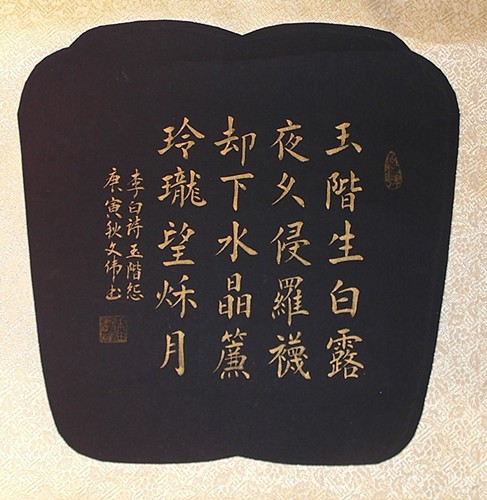 玉階生白露
夜久侵羅襪
却下水晶簾
玲瓏望秌月
李白詩玉階怨
庚寅秋文伟书